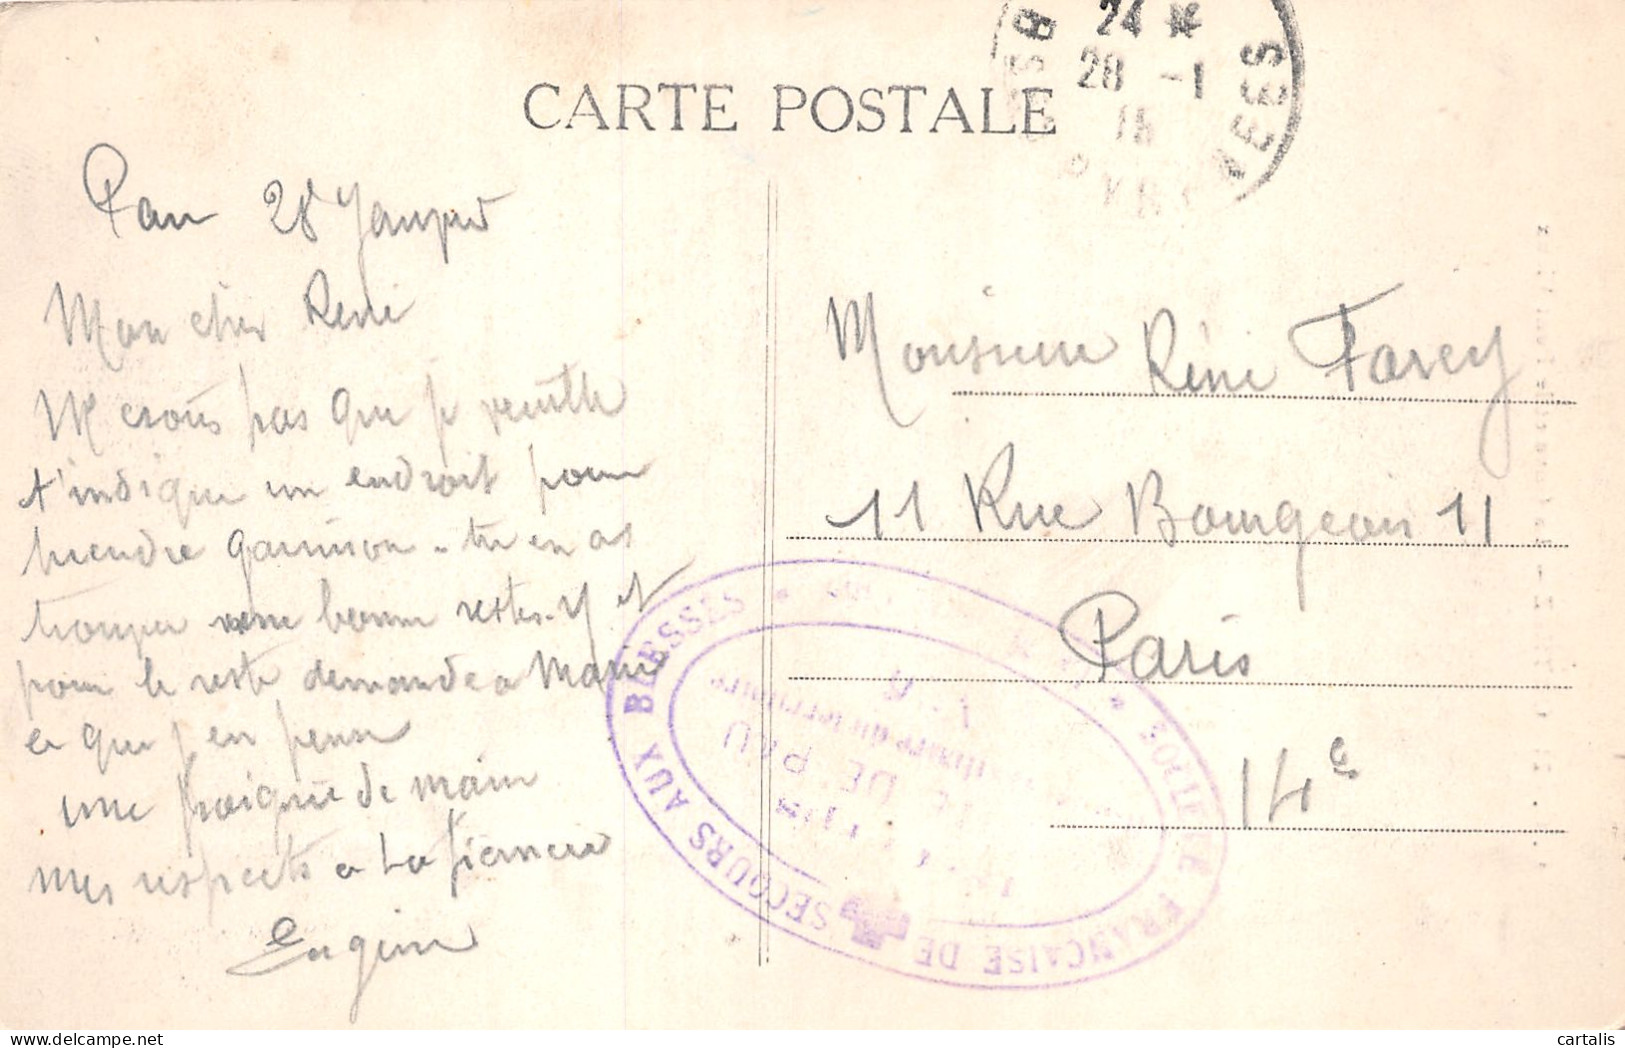 CARTE POSTALE
24 *
28 -1
B
NEES
Pau 28 Janvier
Mon cher René
Ne crois pas que je veuille
t'indique un endroit pour
prendre garnison - tu en as
une bonne restes-y et
pour le reste demande a Marie
ce que j'en pense
une poignée de main
mes respects a ta fiancée
Eugène
Monsieur René Farcy
11 Rue Bourgeois 11
Paris
14e
FRANÇAISE DE SECOURS AUX BLESSES
DE PAU
du territoire
cartalis